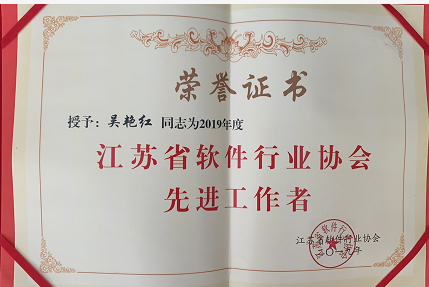 荣誉证书
授予：吴艳红 同志为2019年度
江苏省软件行业协会
先进工作者
江苏省软件行业协会
二〇一九年